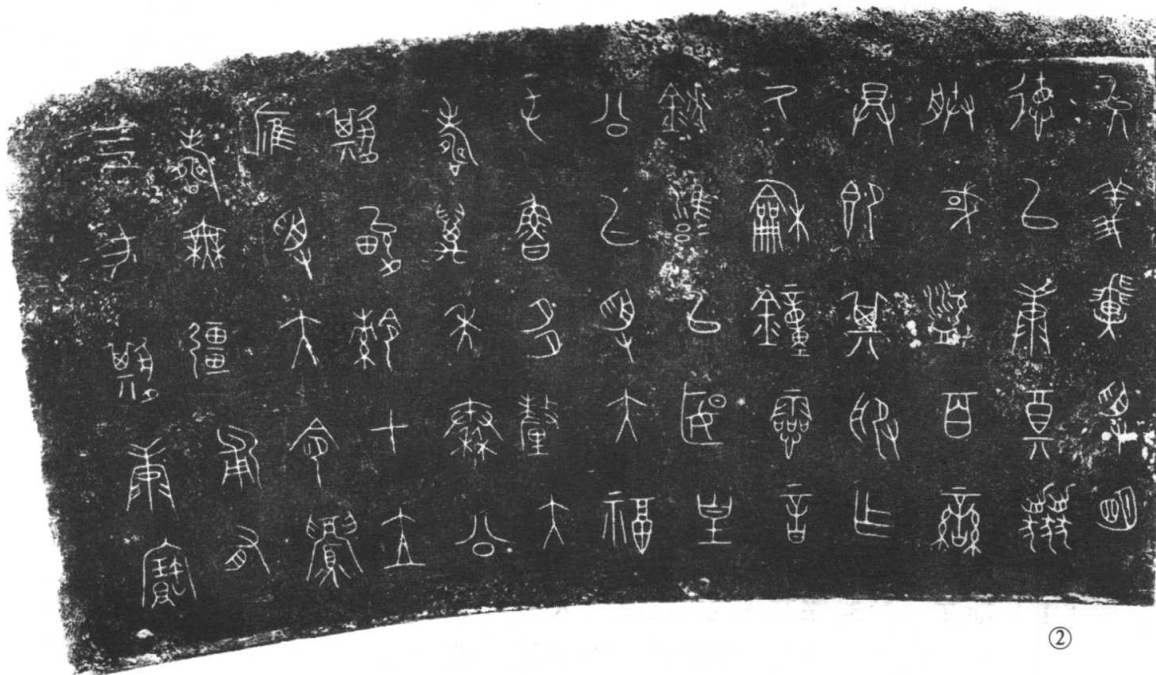 允義翼受明
德以康奠協
朕或盜百䜌
具即其服乍
氒龢鐘霝音
鍴雝以匽皇
公以受大福
屯魯多釐大
壽萬年秦公
其畯才立
雁受大令眉
壽無彊匍有
亖方其康寶
②